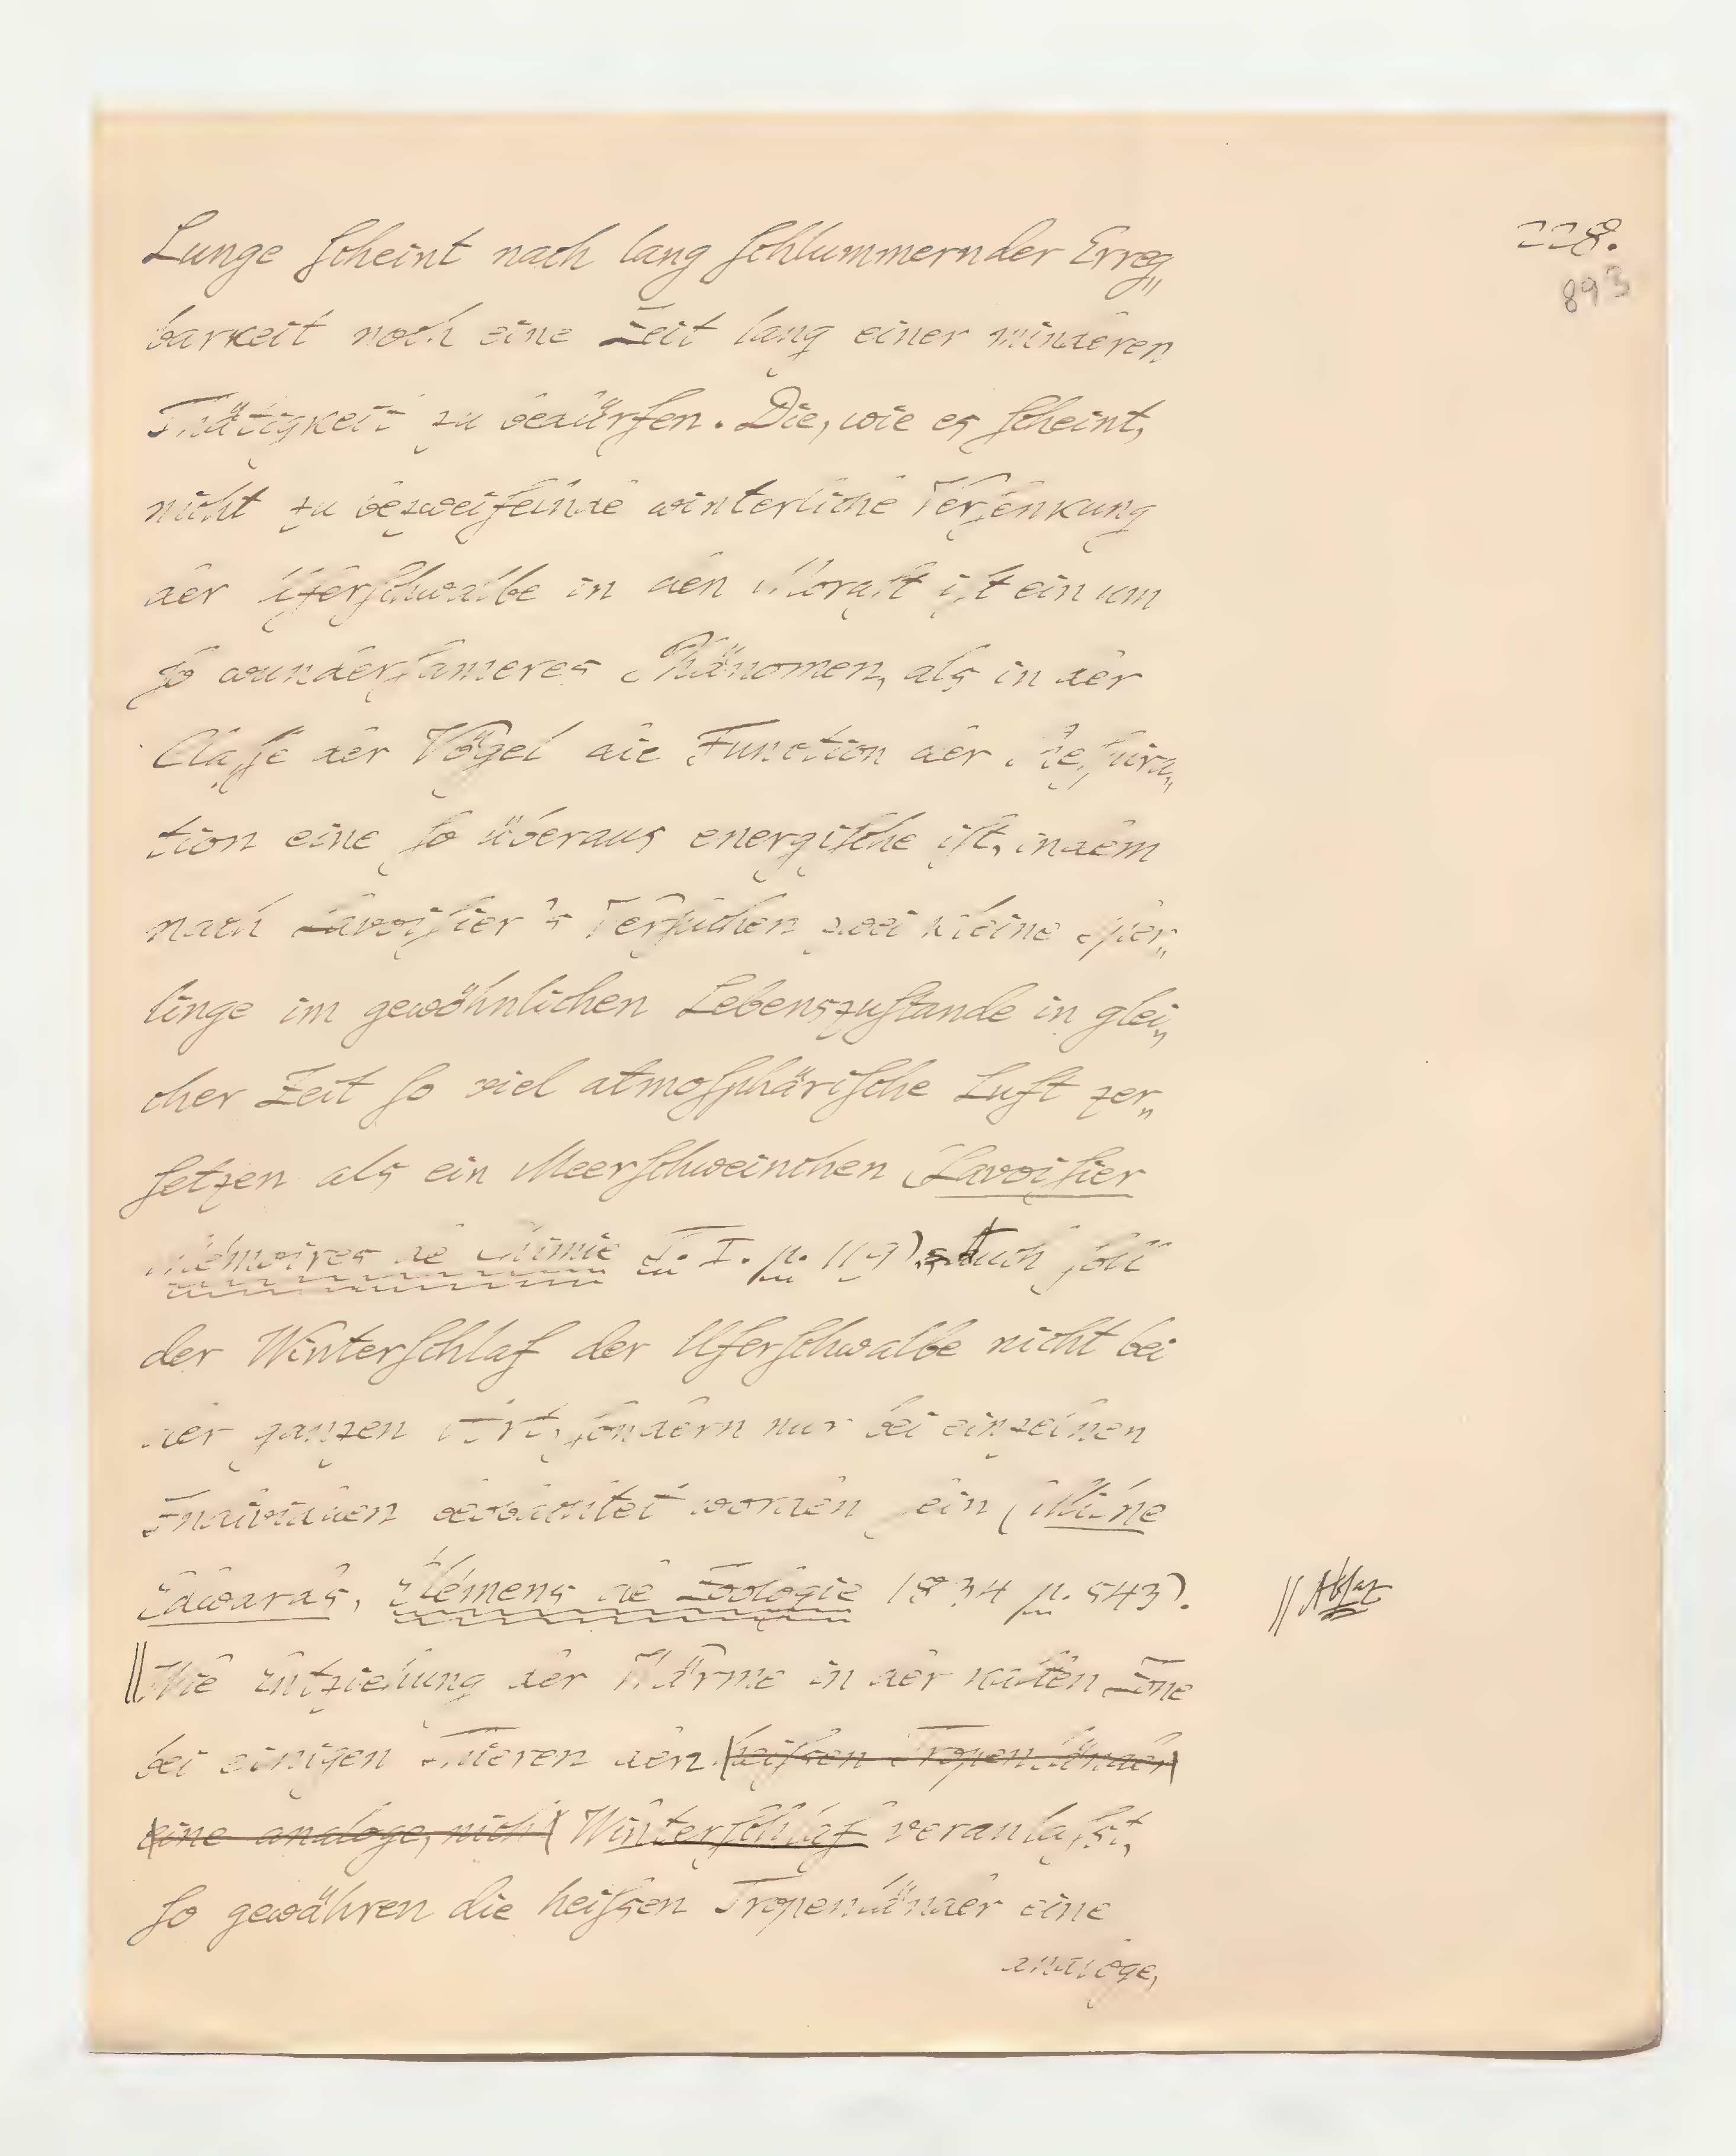 228.
893
Lunge scheint nach lang schlummernder Erreg„
barkeit noch eine Zeit lang einer minderen
Thätigkeit zu bedürfen. Die, wie es scheint,
nicht zu bezweifelnde winterliche Versenkung
der Uferschwalbe in den Morast ist ein um
so wundersameres Phänomen, als in der
Classe der Vögel die Function der Respira„
tion eine so überaus energische ist, indem
nach Lavoisier's Versuchen zwei kleine Sper„
linge im gewöhnlichen Lebenszustande in glei„
cher Zeit so viel atmosphärische Luft zer„
setzen als ein Meerschweinchen (Lavoisier
Mémoires de Chimie T. I. p. 119). Auch soll
der Winterschlaf der Uferschwalbe nicht bei
der ganzen Art, sondern nur bei einzelnen
Individuen beobachtet worden sein (Milne
Edwards, Élémens de Zoologie 1834 p. 543).
// Absaz
||Wie Entziehung der Wärme in der kalten Zone
bei einigen Thieren den heissen Tropenländer
eine analoge, nich Winterschlaf veranlasst,
so gewähren die heissen Tropenländer eine
analoge,